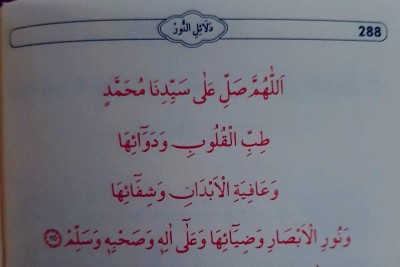 288 دَلَائِلُ النُّورْ
اَللّٰهُمَّ صَلِّ عَلٰى سَيِّدِنَا مُحَمَّدٍ
طِبِّ الْقُلُوبِ وَدَوَٓائِهَا
وَعَافِيَةِ الْاَبْدَانِ وَشِفَٓائِهَا
وَنُورِ الْاَبْصَارِ وَضِيَٓائِهَا وَعَلٰٓى اٰلِه۪ وَصَحْبِه۪ وَسَلِّمْ